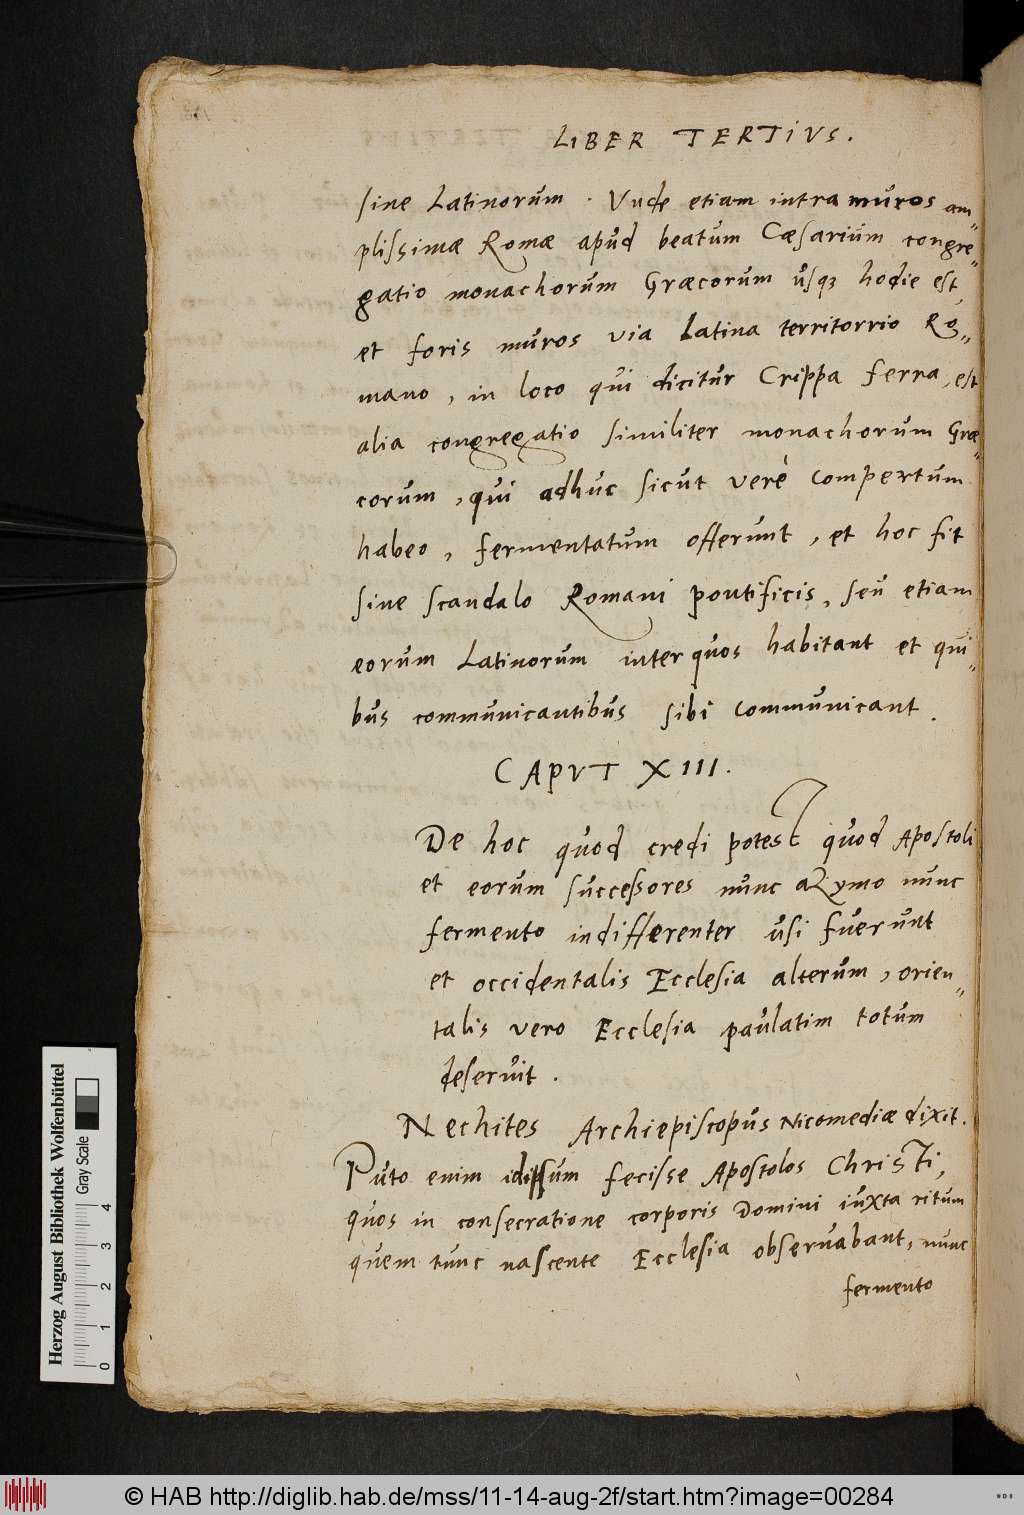 LIBER TERTIVS.
sine Latinorum. Vnde etiam intra muros am„
plissimæ Romæ apud beatum Cæsarium congre„
gatio monachorum Græcorum usq; hodie est,
et foris muros via Latina territorrio Ro„
mano, in loco qui dicitur Crippa ferra, est
alia congregatio similiter monachorum Græ„
corum, qui adhuc sicut verè compertum
habeo, fermentatum offerunt, et hoc fit
sine scandalo Romani pontificis, seu etiam
eorum Latinorum inter quos habitant et qui„
bus communicantibus sibi communicant.
CAPVT XIII.
De hoc quod credi potest quod Apostoli
et eorum successores nunc azymo nunc
fermento indifferenter usi fuerunt
et occidentalis Ecclesia alterum, orien„
talis vero Ecclesia paulatim totum
deseruit.
Nechites Archiepiscopus Nicomediæ dixit.
Puto enim idipsum fecisse Apostolos Christi,
quos in consecratione corporis Domini iuxta ritum
quem tunc nascente Ecclesia obseruabant, nunc
fermento
Herzog August Bibliothek Wolfenbüttel
Gray Scale
0 1 2 3 4
© HAB http://diglib.hab.de/mss/11-14-aug-2f/start.htm?image=00284